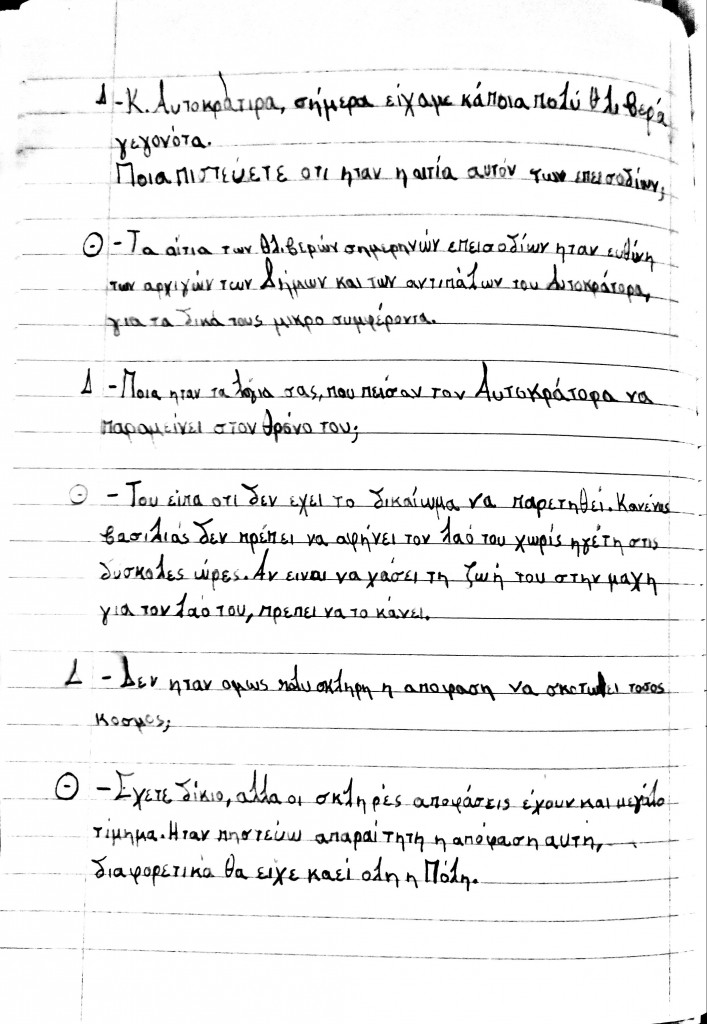 Δ -Κ. Αυτοκράτιρα, σήμερα είχαμε κάποια πολύ θλιβερά
γεγονότα.
Ποια πιστεύετε οτι ηταν η αιτία αυτόν των επεισοδίων;
Θ -Τα αίτια των θλιβερών σημερηνών επεισοδίων ηταν ευθίνη
των αρχιγών των Δήμων και των αντιπάλων του Αυτοκράτορα,
για τα δικά τους μικρο συμφέροντα.
Δ -Ποια ηταν τα λόγια σας, που πείσαν τον Αυτοκράτορα να
παραμείνει στον θρόνο του;
Θ -Του είπα οτι δεν εχει το δικαίωμα να παρετηθεί. Κανένας
βασιλιάς δεν πρέπει να αφήνει τον λαό του χωρίς ηγέτη στις
δύσκολες ώρες. Αν ειναι να χάσει τη ζωή του στην μαχη
για τον λαό του, πρεπει να το κάνει.
Δ -Δεν ηταν ομως πολυ σκληρη η αποφαση να σκοτωθει τοσος
κοσμος;
Θ -Έχετε δίκιο, αλλα οι σκληρές αποφάσεις έχουν και μεγάλο
τίμημα. Ηταν πηστεύω απαραίτητη η απόφαση αυτή,
διαφορετικά θα ειχε καεί ολη η Πόλη.